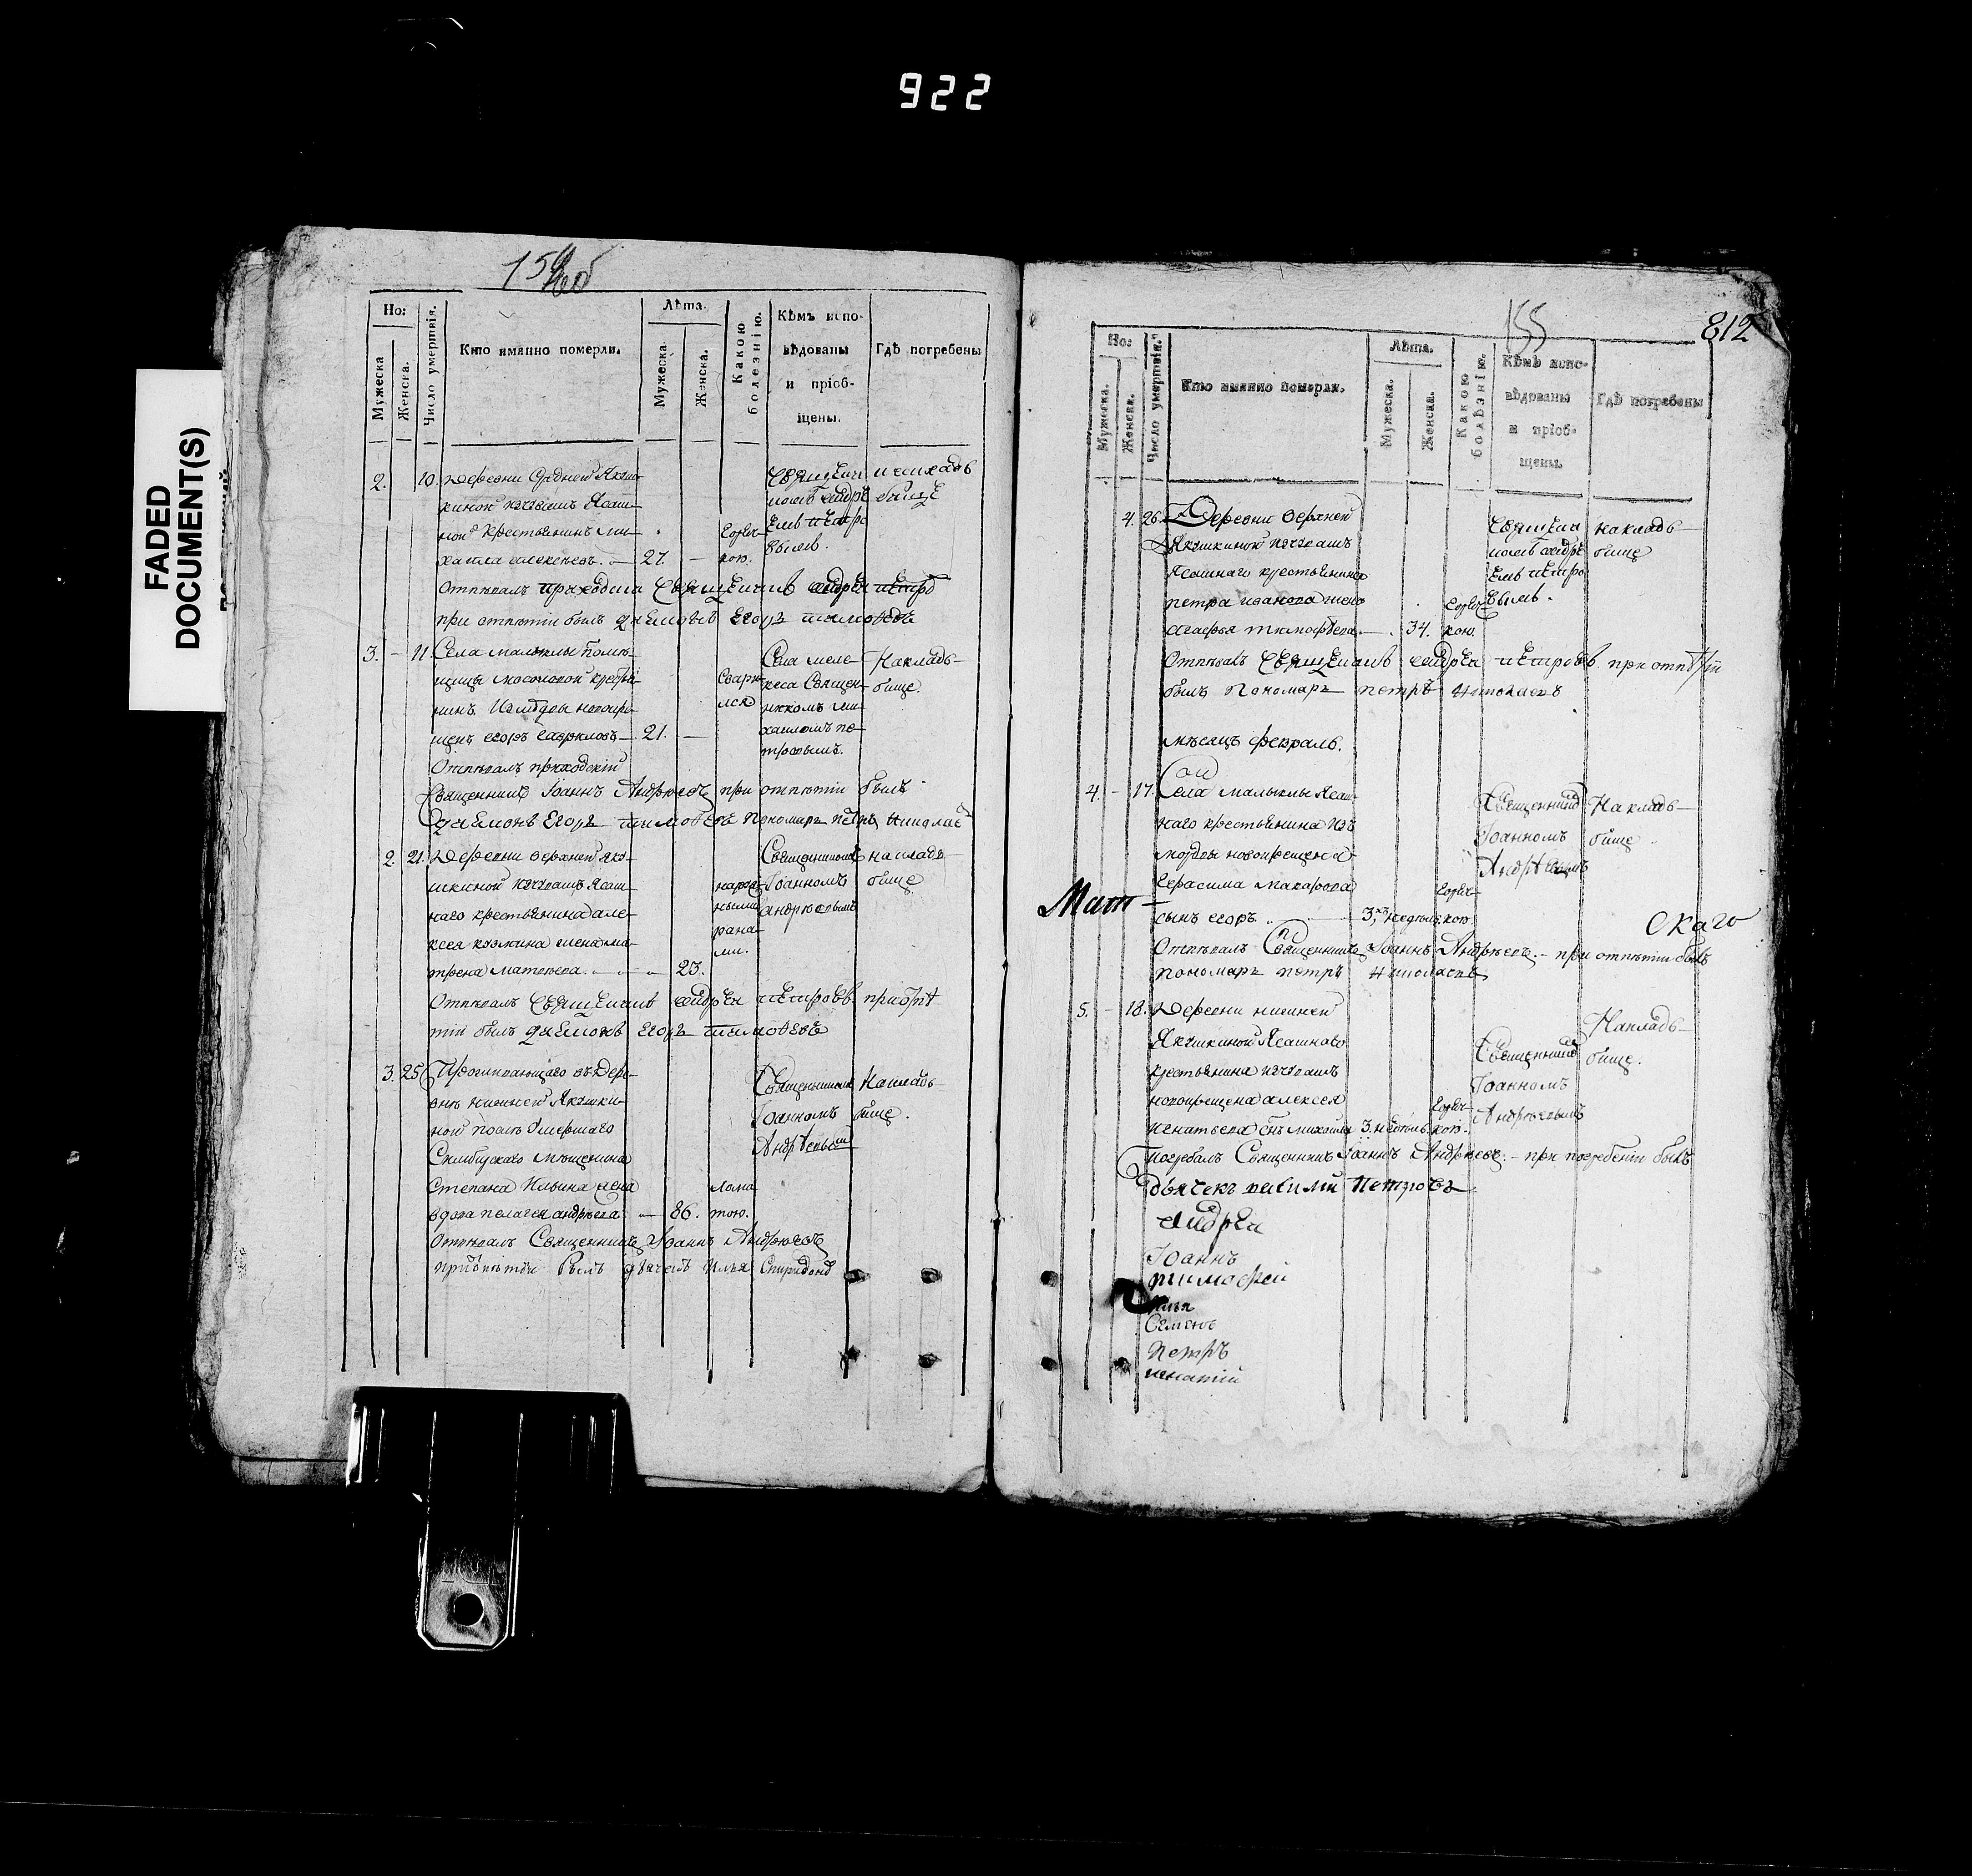 922
FADED
DOCUMENT(S)
159 об
Но:
Мужеска
Женска.
Число умертвія.
Кто имянно померли.
Лѣта.
Мужеска.
Женска.
Какою
болезнію.
Кѣмъ испо-
вѣдованы
и пріоб-
щены.
Гдѣ погребены
2. 10. Деревни Средней Якуш-
киной изчувашъ Ясаш-
ной крестьянинъ ми-
хаила алексеевъ. — 27. —
горяч-
кою.
Священни
комъ андрѣ
емъ петро
вымъ.
накладъ
бище
Отпевалъ приходски Священникъ андрей петро
при отпѣтіи былъ дьяконъ егоръ тимофеевъ
3. – 11. Села малыклы помѣ-
щицы мосоловой крестья-
нинъ. Измордвы новокре-
щенъ егоръ гавриловъ — 21. —
Села меле-
кеса Священ-
никомъ ми-
хаиломъ пе-
тровымъ.
Накладъ-
бище.
Отпевалъ приходскій
Священникъ Іоаннъ Андреевъ при отпѣтіи былъ
дьяконъ Егоръ тимофеевъ Пономарь петръ Николаевъ
2. 21. Деревни верхней яку-
шкиной изчувашъ Ясаш-
наго крестьянина але-
ксея козмина жена ма-
трена матвеева. — 23.
рана-
ми.
Священникомъ
Іоанномъ
андреевымъ
накладъ-
бище
Отпевалъ Священникъ андрей петровъ при отпѣ
тіи былъ дьяконъ егоръ тимофеевъ
3. 25. Проживающаго въ дере-
внѣ нижней Якушки-
ной послѣ умершаго
Симбирскаго мещанина
Степана Ильина жена
вдова пелагея андреева — 86.
Священникомъ
Іоанномъ
Андреевымъ
Накладъ-
бище.
Отпевалъ Священникъ Іоаннъ Андреевъ
при отпѣтіи былъ дьячекъ Илья Спиридоновъ
155
812
Но:
Мужеска.
Женска.
Число умертвія.
Кто имянно померли.
Лѣта.
Мужеска.
Женска.
Какою
болѣзнію.
Кѣмъ испо-
вѣдованы
и пріоб-
щены.
Гдѣ погребены
4. 26. Деревни верхней
Якушкиной изчувашъ
Ясашнаго крестьянина
петра иванова жена
агафья тимофеева — 34.
горяч
кою.
Священни
комъ андрѣ
емъ петро
вымъ.
накладъ-
бище
Отпевалъ Священникъ андрей петровъ при отпѣтіи
былъ Пономарь петръ Николаевъ
мѣсяцъ февраль.
4. – 17. Села малыклы Ясаш-
наго крестьянина изъ
мордвы новокрещена
герасима макарова
сынъ егоръ 3, недель
горяч-
кою.
Священникомъ
Іоанномъ
Андреевымъ
Накладъ-
бище.
Мат-
скаго
Отпевалъ Священникъ Іоаннъ Андреевъ. – при отпѣтіи былъ
пономарь петръ Николаевъ
5. – 18. Деревни нижней
Якушкиной Ясашнаго
крестьянина изчувашъ
новокрещена алексея
игнатьева снъ михаила 3. недель.
горяч-
кою.
Священникомъ
Іоанномъ
Андреевымъ
Накладъ-
бище.
Погребалъ Священникъ Іоаннъ Андреевъ. – при погребеніи былъ
дьячекъ Петровъ
андрей
Іоаннъ
тимофей
илья
Семенъ
Петръ
игнатій